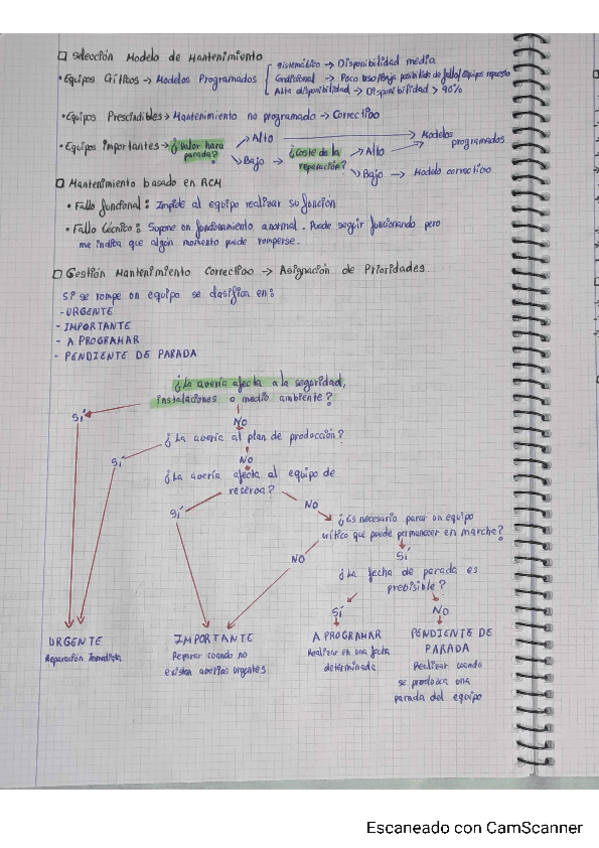 □ Selección Modelo de Mantenimiento
• Equipos Críticos → Modelos Programados
Sistemático → Disponibilidad media
Condicional → Poco uso/Baja posibilidad de fallo/equipos repuesto
Alta disponibilidad → Disponibilidad > 90%
• Equipos Prescindibles → Mantenimiento no programado → Correctivo
• Equipos importantes → ¿Valor hora parada?
Alto → Modelos programados
Bajo → ¿Coste de la reparación?
Alto →
Bajo → Modelo correctivo
□ Mantenimiento basado en RCM
• Fallo funcional: Impide al equipo realizar su función
• Fallo técnico: Supone un funcionamiento anormal. Puede seguir funcionando pero
me indica que algún momento puede romperse.
□ Gestión Mantenimiento Correctivo → Asignación de Prioridades.
Si se rompe un equipo se clasifica en:
- URGENTE
- IMPORTANTE
- A PROGRAMAR
- PENDIENTE DE PARADA
¿La avería afecta a la seguridad,
instalaciones o medio ambiente?
SÍ
NO
¿La avería al plan de producción?
SÍ
NO
¿La avería afecta al equipo de
reserva?
SÍ
NO
¿Es necesario parar un equipo
crítico que puede permanecer en marcha?
NO
SÍ
¿La fecha de parada es
previsible?
SÍ
NO
URGENTE
Reparación Inmediata
IMPORTANTE
Reparar cuando no
existan averías urgentes
A PROGRAMAR
Realizar en una fecha
determinada
PENDIENTE DE
PARADA
Realizar cuando
se produzca una
parada del equipo
Escaneado con CamScanner